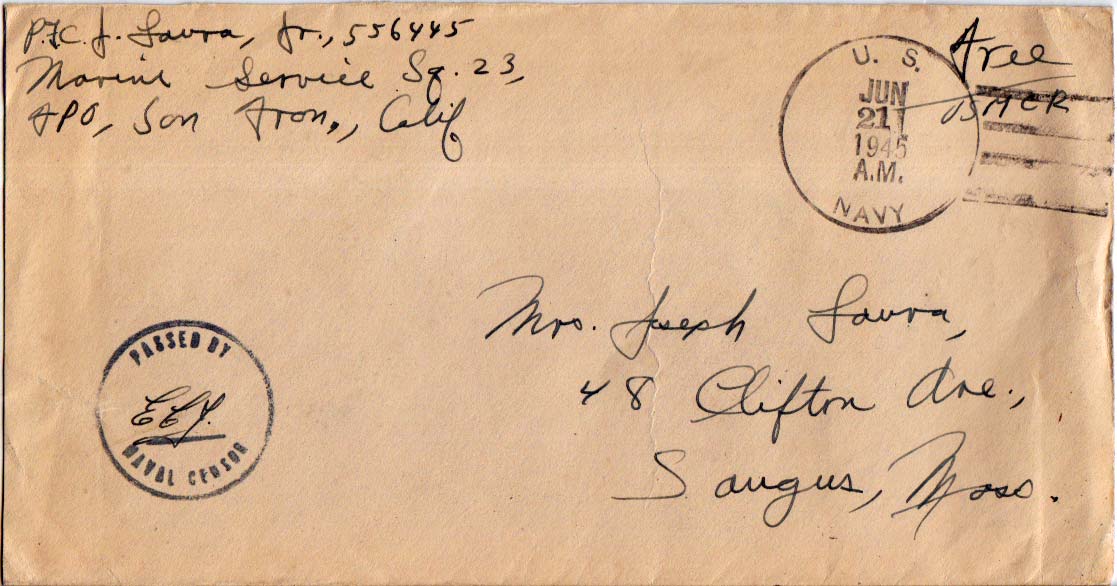 P.F.C. J. Laura, Jr., 556445
Marine Service Sq. 23,
FPO, San Fran., Calif
U. S.
JUN
21
1945
A.M.
NAVY
Free
USMCR
Mrs. Joseph Laura,
48 Clifton Ave.,
Saugus, Mass.
PASSED BY
NAVAL CENSOR